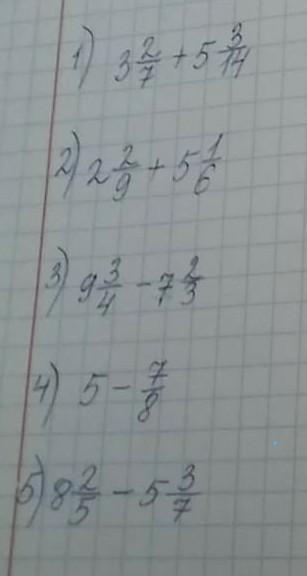 1) 3 2/7 + 5 3/14
2) 2 2/9 + 5 1/6
3) 9 3/4 - 7 2/3
4) 5 - 7/8
5) 8 2/5 - 5 3/7